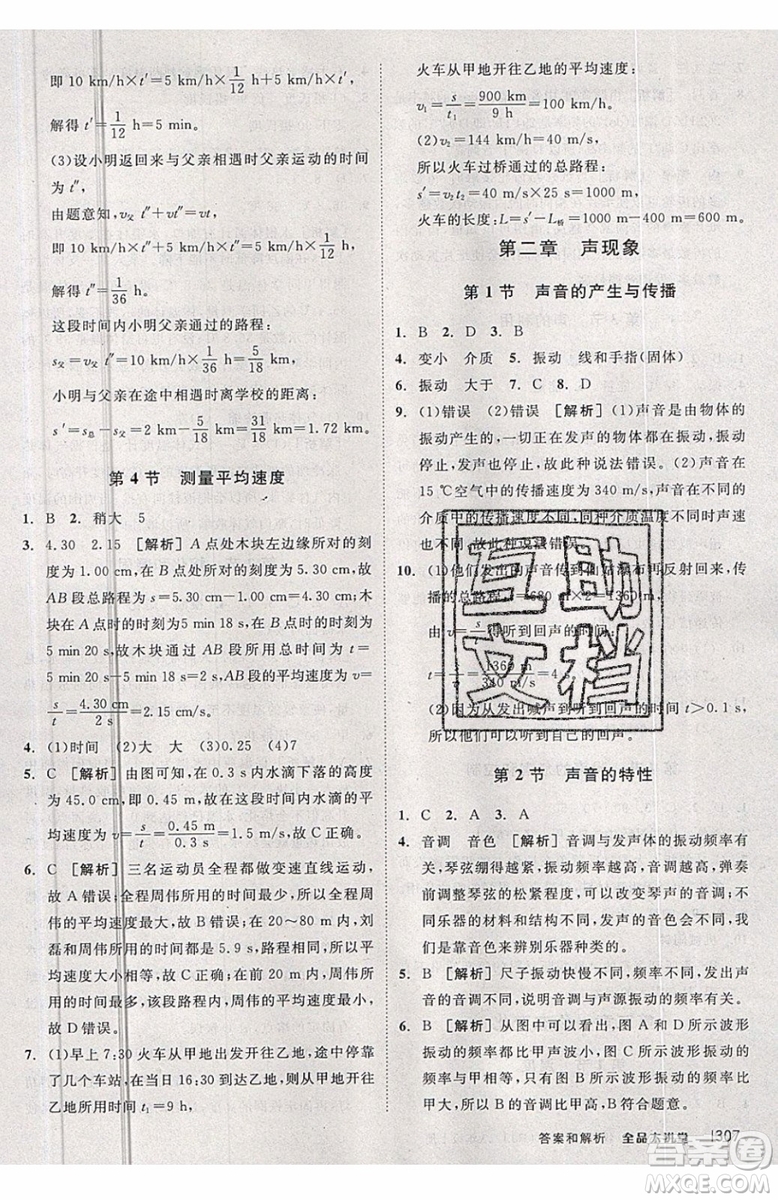 即 10 km/h×t′=10 km/h×1/12 h+5 km/h×1/12 h,
解得 t′=1/12 h=5 min。
(3)设小明返回来与父亲相遇时父亲运动的时间
为 t″,
由题意知,v父 t″+vt″=vt
即 10 km/h×t″+10 km/h×t″=10 km/h×1/12 h,
解得:t″=1/36 h;
这段时间内小明父亲通过的路程:
s父=v父t″=10 km/h×1/36 h=5/18 km,
小明与父亲在途中相遇时离学校的距离:
s′=s总-s父=2 km-5/18 km=31/18 km=1.72 km。
第 4 节 测量平均速度
1. B 2. 稍大 5
3. 4.30 2.15 [解析]A 点处木块左边缘所对的刻
度为 1.00 cm,在 B 点处所对的刻度为 5.30 cm,故
AB 段总路程为 s=5.30 cm-1.00 cm=4.30 cm;木
块在 A 点时的时刻为5 min 18 s,在 B 点时的时刻为
5 min 20 s,故木块通过 AB 段所用的总时间 t=
5 min 20 s-5 min 18 s=2 s;AB 段的平均速度 v=
s/t=4.30 cm/2 s=2.15 cm/s。
4. (1)时间 (2)大 大 (3)0.25 (4)7
5. C [解析]由图可知,在这段时间内水滴下落的高度
为 45.0 cm,即 0.45 m,故 A、B 错误;水滴下落的平
均速度为 v=s/t=0.45 m/0.3 s=1.5 m/s,故 C 正确。
6. C [解析]三名运动员全程都做变速直线运动,
故 A 错误;全程周伟所用的时间最少,所以全程周
伟的平均速度最大,故 B 错误;在 20～80 m 内,刘
磊和周伟所用的时间都是 5.9 s,路程相同,故平均
速度大小相等,故 C 正确;在 80～100 m 内,周伟的
速度最小,所以该段路程内,周伟的平均速度最小,
故 D 错误。
7. (1)早上 7:30 火车从甲地出发开往乙地,途中停靠
了几个车站,在当日 16:30 到达乙地,则火车从甲地
开往乙地所用的时间 t1=9 h,
火车从甲地开往乙地的平均速度:
v1=s/t1=900 km/9 h=100 km/h。
(2)v2=144 km/h=40 m/s,
所以火车过桥通过的总路程:
s′=v2t2=40 m/s×25 s=1000 m,
火车的长度:L=s′-L桥=1000 m-400 m=600 m。
第二章 声现象
第 1 节 声音的产生与传播
1. B 2. D 3. B
4. 变小 介质 5. 振动 线和手指(固体)
6. 振动 大于 7. C 8. D
9. (1)错误 (2)错误 [解析](1)声音是由物体的
振动产生的,一切正在发声的物体都在振动,振动
停止,发声也停止,故此种说法错误。(2)声音在
15 ℃空气中的传播速度为 340 m/s,声音在不同的
介质中的传播速度不同,同种介质温度不同时声速
也不同,故此种说法错误。
10. (1)他们发出的声音传到山崖瀑布再反射回来,传
播的总路程 s=680 m×2=1360 m,
由 v=s/t得听到回声的时间:
t=s/v=1360 m/ =4
(2)因为从发出喊声到听到回声的时间 t>0.1 s,
所以他们可以听到回声。
第 2 节 声音的特性
1. C 2. A 3. A
4. 音调 音色 [解析]音调与发声体的振动频率有
关,琴弦绷得越紧,振动频率越高,音调越高,故演奏
前调整琴弦的松紧程度,可以改变琴声的音调;由于
不同乐器的材料和结构不同,发声的音色会不同,我
们是靠音色来辨别乐器种类的。
5. B [解析]尺子振动快慢不同,即频率不同,发出声
音的音调不同,说明音调与声源振动的频率有关。
6. B [解析]从图中可以看出,图 A 和 D 所示波形
振动的频率比甲声波小,B 所示波形振动的频率比
甲大,C 所示波形振动的频率与甲相同,B 符合题意。
互助
文档
答案和解析 全品大讲堂 307
MXQE.COM